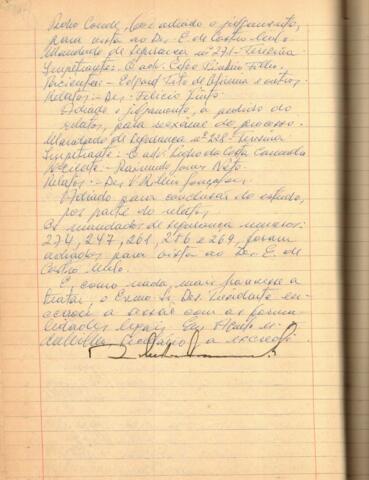 Pedro Conde, foi adiado o julgamento,
para vista ao Des. E. de Castro Melo.
Mandado de segurança nº 271 - Teresina
Impetrantes: O adv. Celso Pinheiro Filho.
Pacientes: - Edgard Tito de Oliveira e outros.
Relator: - Des. Felicio Pinto.
Adiado o julgamento, a pedido do
relator, para reexame do processo.
Mandado de Segurança nº 228 - Teresina
Impetrante: O adv. da Costa
Paciente - Raimundo Neto.
Relator: - Des.
Adiado para conclusão do estudo,
por parte do relator.
Os mandados de segurança numeros:
274, 247, 261, 286 e 269, foram
adiados para vista ao Des. E. de
Castro Melo.
E, como nada mais houvesse a
tratar, o Exmo. Sr. Des. Presidente en-
cerrou a sessão com as forma-
lidades legais. Eu,
Secretário, a escrevi.